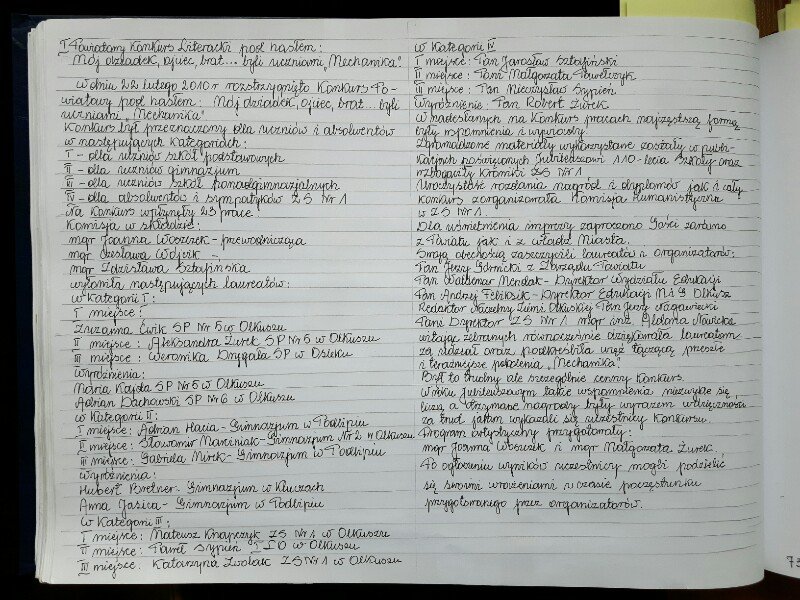 I Powiatowy Konkurs Literacki pod hasłem:
Mój dziadek, ojciec, brat... byli uczniami „Mechanika"
W dniu 22 lutego 2010 r rozstrzygnięto Konkurs Po-
wiatowy pod hasłem: Mój dziadek, ojciec, brat... byli
uczniami „Mechanika"
Konkurs był przeznaczony dla uczniów i absolwentów
w następujących kategoriach:
I - dla uczniów szkół podstawowych
II - dla uczniów gimnazjum
III - dla uczniów szkół ponadgimnazjalnych
IV - dla absolwentów i sympatyków ZS Nr 1
Na konkurs wpłynęły 23 prace.
Komisja w składzie:
mgr Joanna Woszczek - przewodnicząca
mgr Czesława Wójcik -
mgr Zdzisława Sztafińska
wyłoniła następujących laureatów:
w Kategorii I:
I miejsce:
Zuzanna Ćwik SP Nr 5 w Olkuszu
II miejsce: Aleksandra Żurek SP Nr 5 w Olkuszu
III miejsce: Weronika Drygała SP w Osieku
Wyróżnienia:
Maria Kajda SP Nr 5 w Olkuszu
Adrian Dachowski SP Nr 6 w Olkuszu
w Kategorii II:
I miejsce: Adrian Hacia - Gimnazjum w Podlipiu
II miejsce: Sławomir Marciniak - Gimnazjum Nr 2 w Olkuszu
III miejsce: Gabriela Mirek - Gimnazjum w Podlipiu
Wyróżnienia:
Hubert Bretner - Gimnazjum w Kluczach
Anna Jasica - Gimnazjum w Podlipiu
w Kategorii III:
I miejsce: Mateusz Knapczyk ZS Nr 1 w Olkuszu
II miejsce: Paweł Sypień I LO w Olkuszu
III miejsce: Katarzyna Zwolak ZS Nr 1 w Olkuszu
w Kategorii IV
I miejsce: Pan Jarosław Sztafiński
II miejsce: Pani Małgorzata Pawelczyk
III miejsce: Pan Mieczysław Sypień
Wyróżnienie: Pan Robert Żurek
W nadesłanych na Konkurs pracach najczęstszą formą
były wspomnienia i wywiady.
Zgromadzone materiały wykorzystane zostały w publi-
kacjach poświęconych Jubileuszowi 110-lecia Szkoły oraz
wzbogaciły Kroniki ZS Nr 1
Uroczystość rozdania nagród i dyplomów jak i cały
konkurs zorganizowała Komisja Humanistyczna
w ZS Nr 1.
Dla uświetnienia imprezy zaproszono Gości zarówno
z Powiatu jak i z władz Miasta.
Swoją obecnością zaszczycili laureatów i organizatorów:
Pan Jerzy Górnicki z Zarządu Powiatu
Pan Waldemar Mendak - Dyrektor Wydziału Edukacji
Pan Andrzej Feliksik - Dyrektor Edukacji M i G Olkusz
Redaktor Naczelny Ziemi Olkuskiej Pan Jerzy Nagawiecki
Pani Dyrektor ZS Nr 1 mgr inż. Aldona Nowicka
witając zebranych równocześnie dziękowała laureatom
za udział oraz podkreśliła więź łączącą przeszłe
i teraźniejsze pokolenia „Mechanika"
Był to trudny ale szczególnie cenny konkurs.
W roku jubileuszowym takie wspomnienia niezwykle się
liczą a otrzymane nagrody były wyrazem wdzięczności
za trud jakim wykazali się uczestnicy Konkursu.
Program artystyczny przygotowały:
mgr Joanna Woszczek i mgr Małgorzata Żurek.
Po ogłoszeniu wyników uczestnicy mogli podzielić
się swoimi wrażeniami w czasie poczęstunku
przygotowanego przez organizatorów.
73